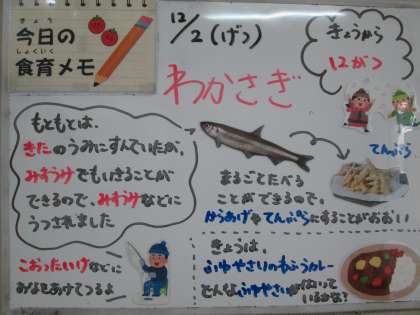 きょう
今日の
しょくいく
食育メモ
12/2(げつ)
きょうから
12がつ
わかさぎ
もともとは、
きたのうみにすんでいたが、
みずうみでもいきることが
できるので、みずうみなどに
うつされました
てんぷら
まるごとたべる
ことができるので、
からあげやてんぷらにすることがおおい!
こおったいけなどに
あなをあけてつるよ
きょうは、
ふゆやさいのもふうカレー
どんなふゆやさいが
はいって
いるかな?